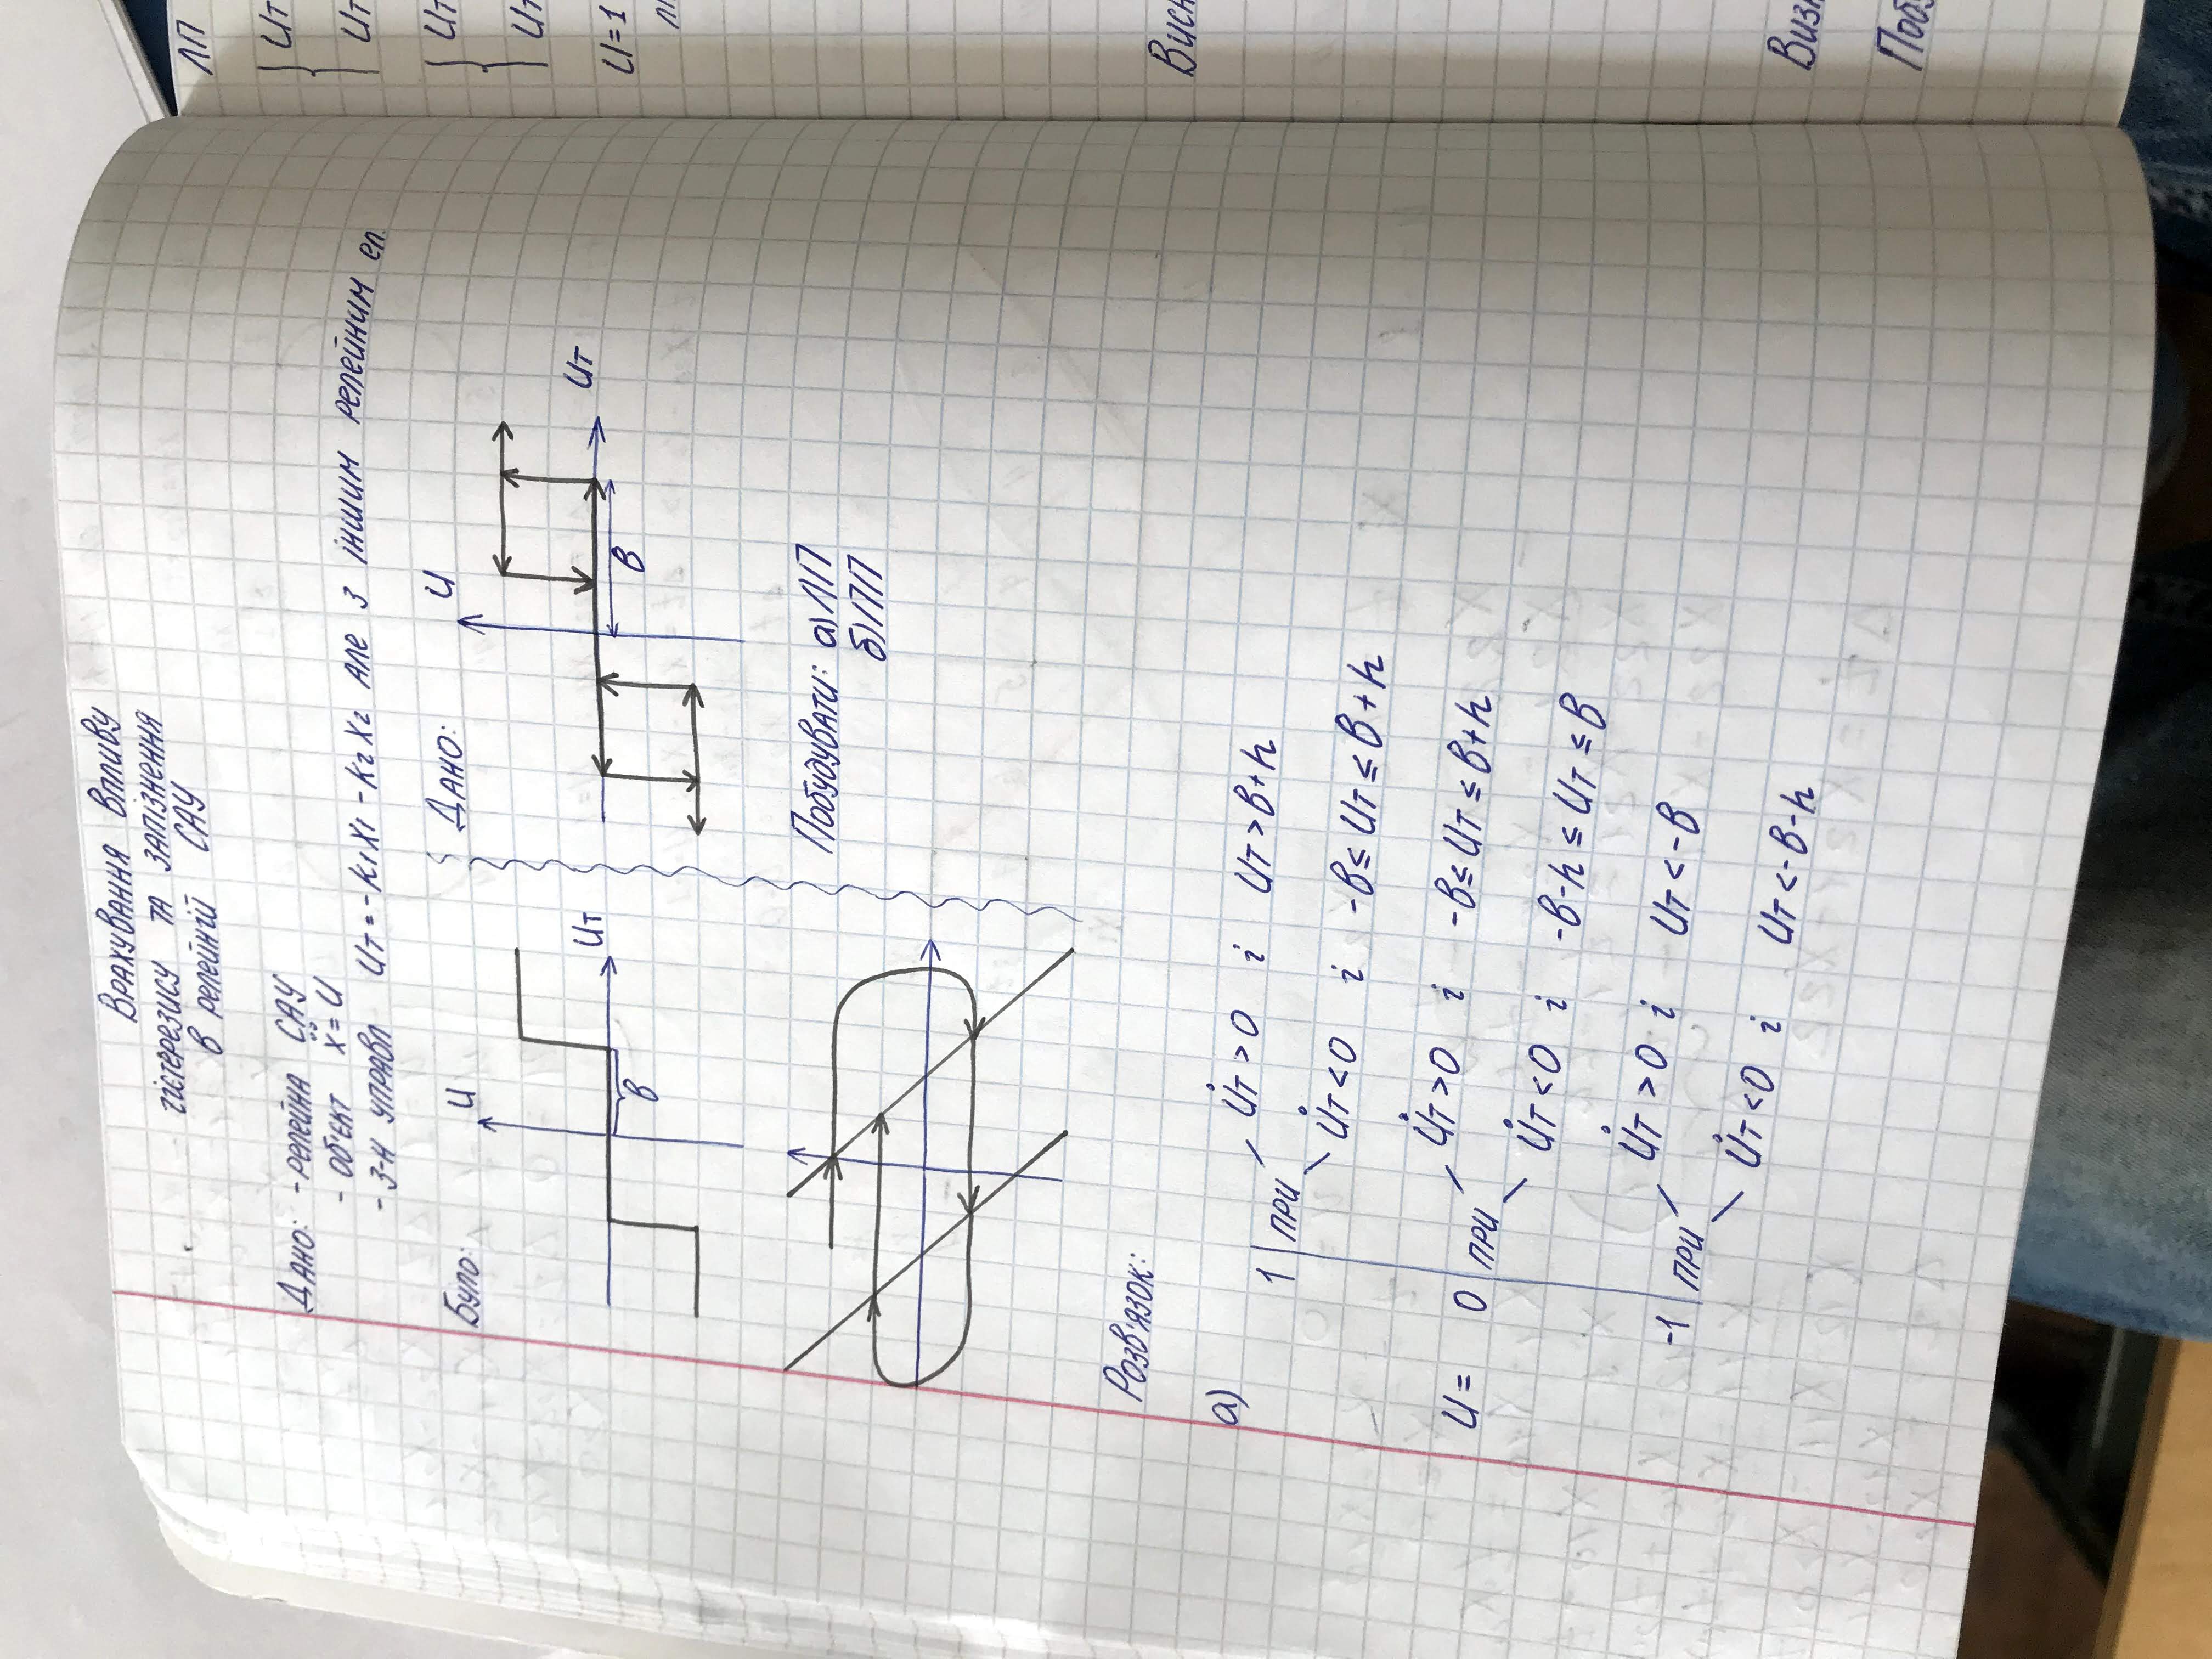 Врахування впливу
гістерезису та запізнення
в релейній САУ
Дано: - релейна САУ
- об'єкт ẍ = U
- з-н управл Uт = -K₁X₁ - K₂X₂ але з іншим релейним ел.
Було:
U
Uт
в
Дано:
U
Uт
в
Побудувати: а) ЛП
б) ПП
Розв'язок:
а)
1 при U̇т > 0 і Uт > в + h
U̇т < 0 і -в ≤ Uт ≤ в + h
U = 0 при U̇т > 0 і -в ≤ Uт ≤ в + h
U̇т < 0 і -в - h ≤ Uт ≤ в
-1 при U̇т > 0 і Uт < -в
U̇т < 0 і Uт < -в - h
ЛП
Uт
Uт
Uт
Uт
U = 1